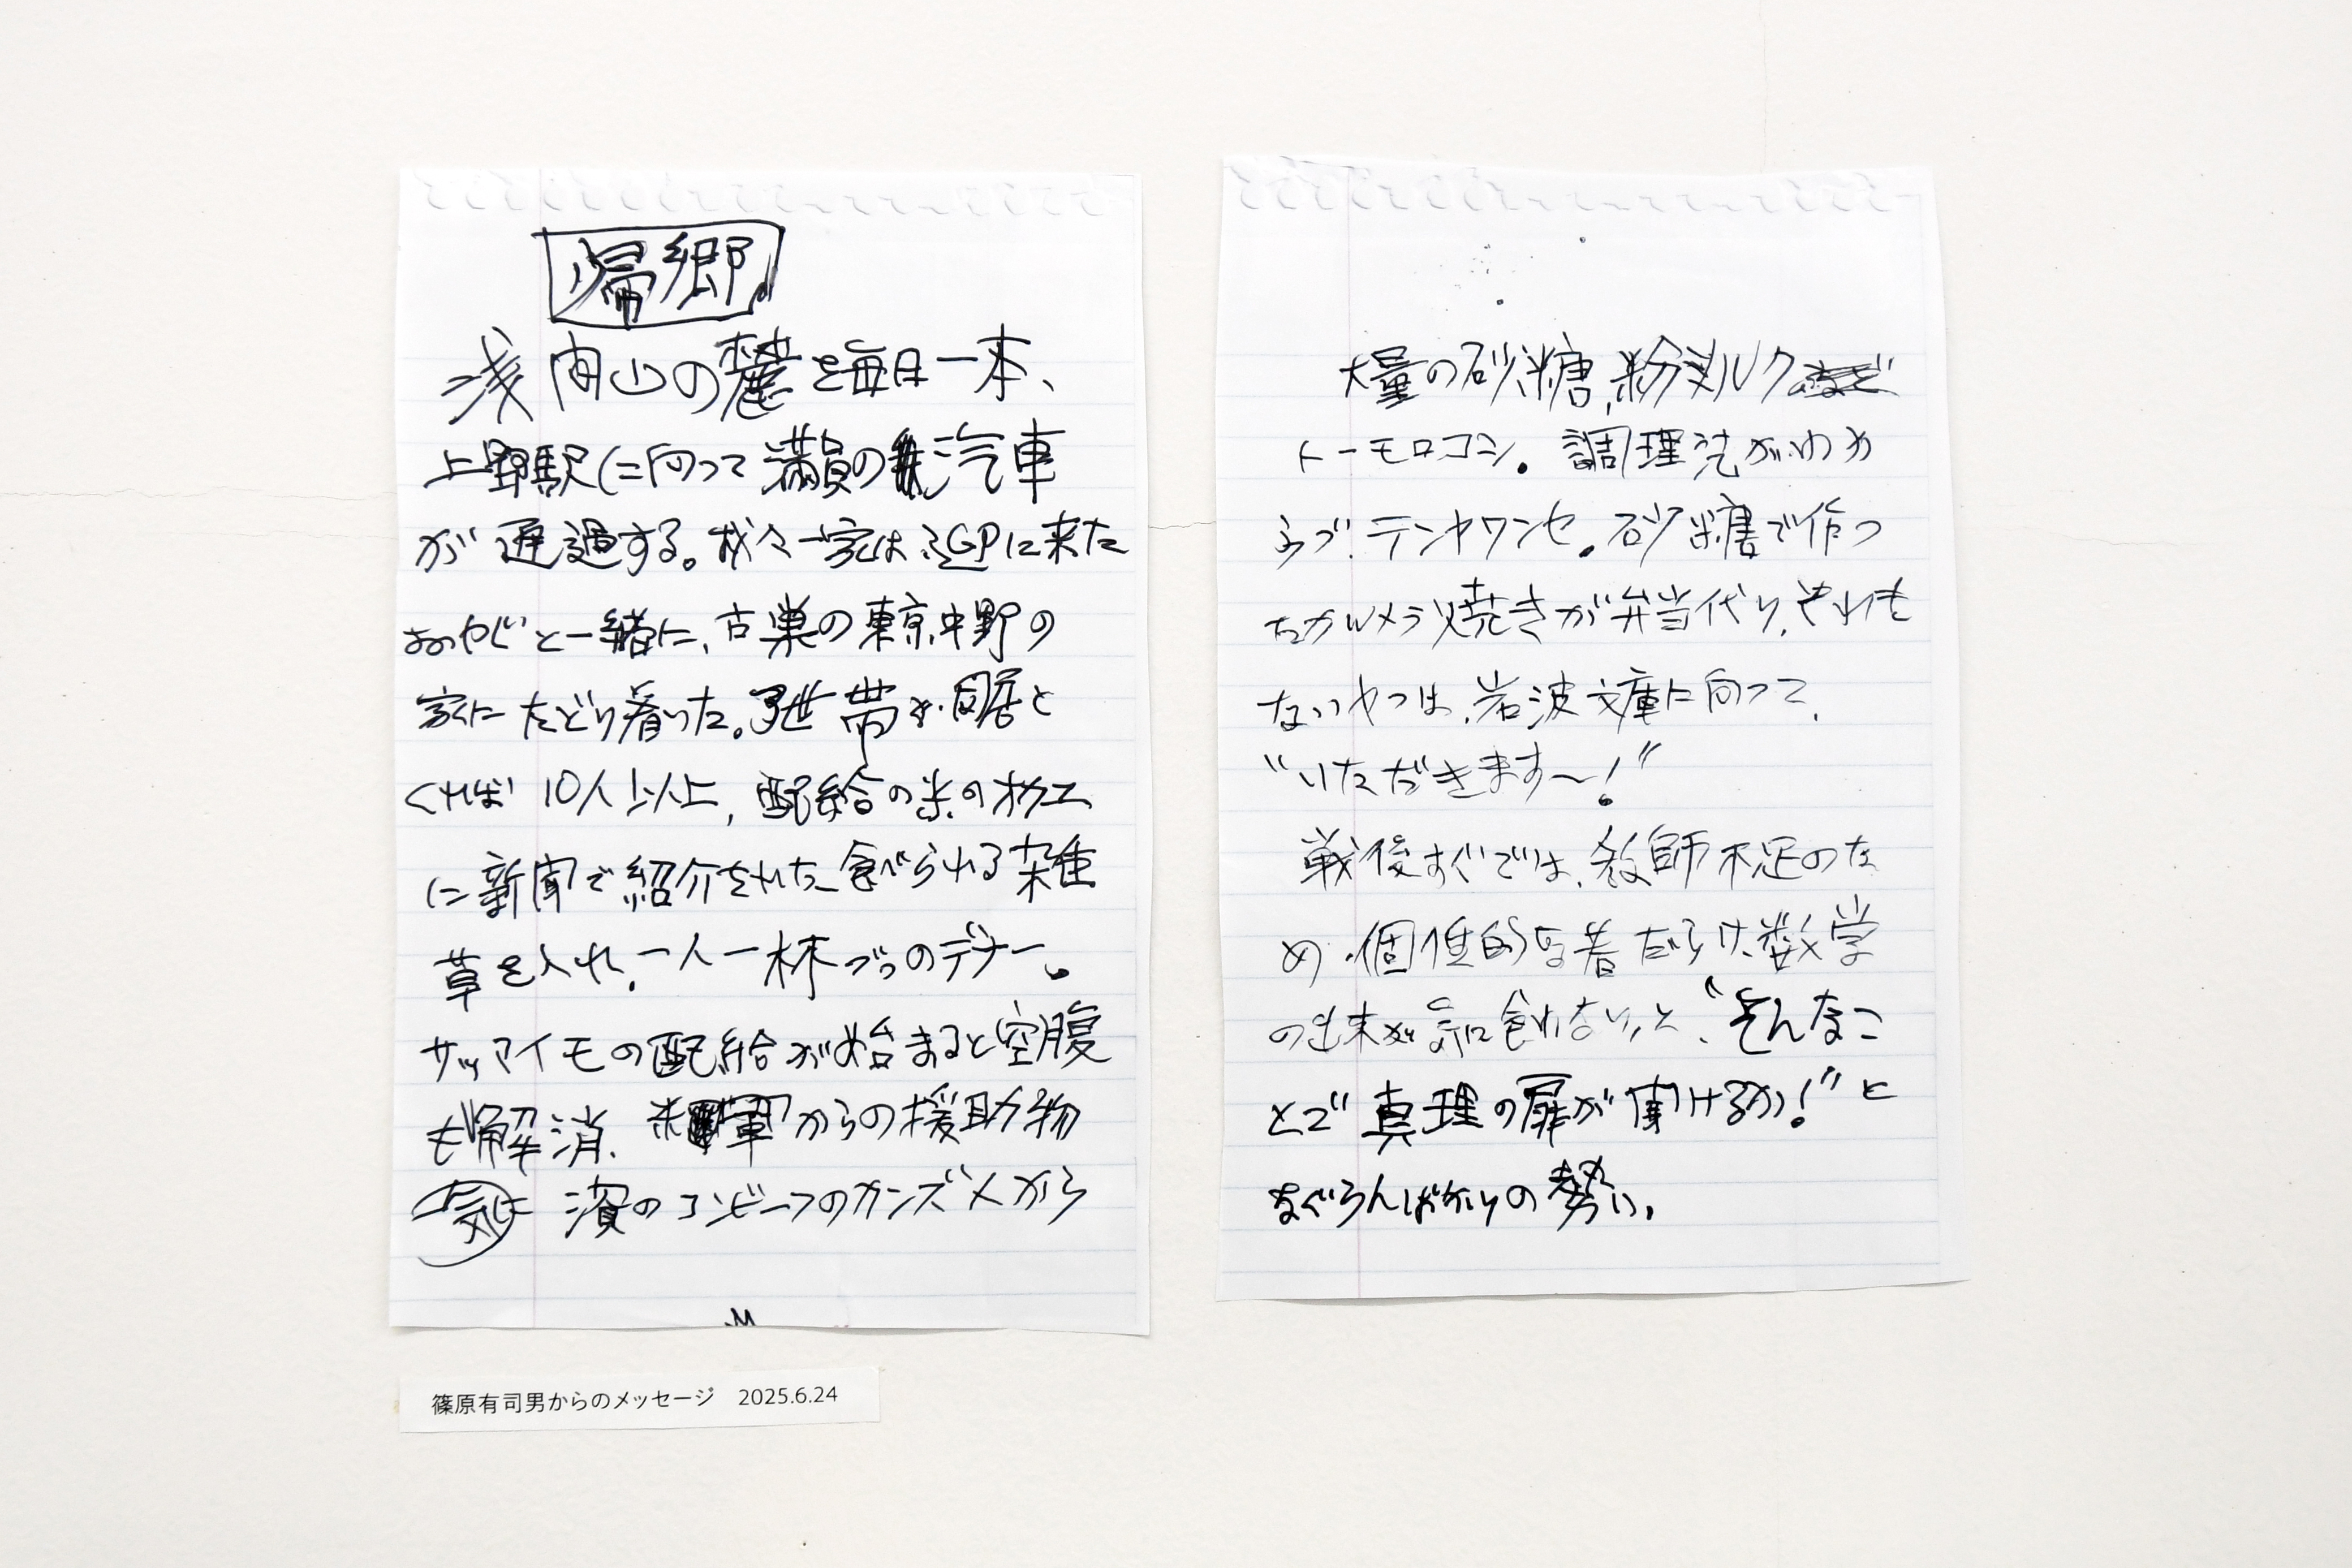 帰郷
浅間山の麓を毎日一本、
上野駅に向って満員の汽車
が通過する。我々一家は に来た
おやじと一緒に、古巣の東京中野の
家にたどり着いた。3世帯が同居と
くれば10人以上、配給の米の
に新聞で紹介された食べられる雑
草を入れ、一人一杯づつのデナー。
サツマイモの配給が始まると空腹
も解消、米軍からの援助物
濱のコンビーフのカンズメから
大量の砂糖、粉ミルク
トーモロコシ。調理法がわか
らづ、テンヤワンヤ。砂糖で作っ
たカルメラ焼きが弁当代り、それも
ないやつは、岩波文庫に向って、
“いただきます〜！”
戦後すぐでは、教師不足のた
め、個性的な者だらけ、数学
の出来が気に食わないと、“そんなこ
とで真理の扉が開けるか！”と
なぐらんばかりの勢い。
篠原有司男からのメッセージ 2025.6.24